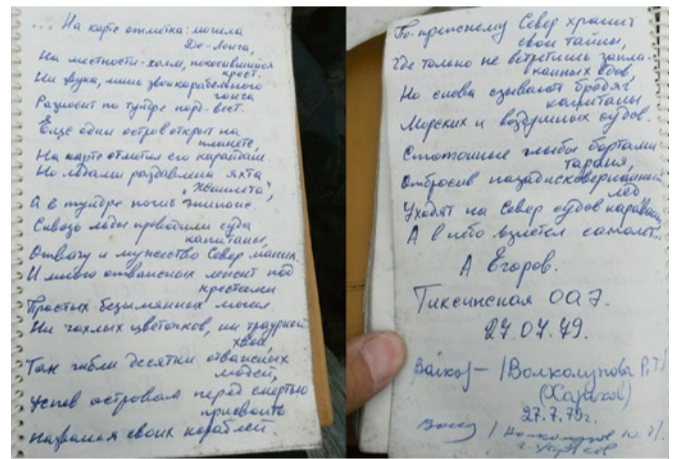 ... На карте отметка: могила
Де-Лонга,
На местности - холм, покосившийся
крест.
Ни звука, лишь звон корабельного
гонга
Разносит по тундре норд-вест.
Еще один остров открыт на
планете,
На карте отметил его капитан.
Но льдами раздавлена яхта
"Жаннетта",
А в тундре погиб экипаж
Сквозь льды проводили суда
капитаны,
Отвагу и мужество Север манил.
И много отважных лежит под
крестами
Простых безымянных могил.
Ни чахлых цветочков, ни траурной
хвои,
Так гибли десятки отважных
людей,
Успев островам перед смертью
присвоить
Названия своих кораблей.
По-прежнему Север хранит
свои тайны,
Где только не встретишь запла-
канных вдов,
Но снова сзывают бродяг
капитаны
Морских и воздушных судов.
Стотонные глыбы бортами
тараня,
Отбросив назад исковерканный
лед
Уходят на Север судов караваны,
А в небо взлетел самолет...
А Егоров.
Тиксинская ОАЭ.
27.07.79.
/Волколупова Р.
(Харьков)
27.7.79г.
/Волколупов Ю.
г. Харьков